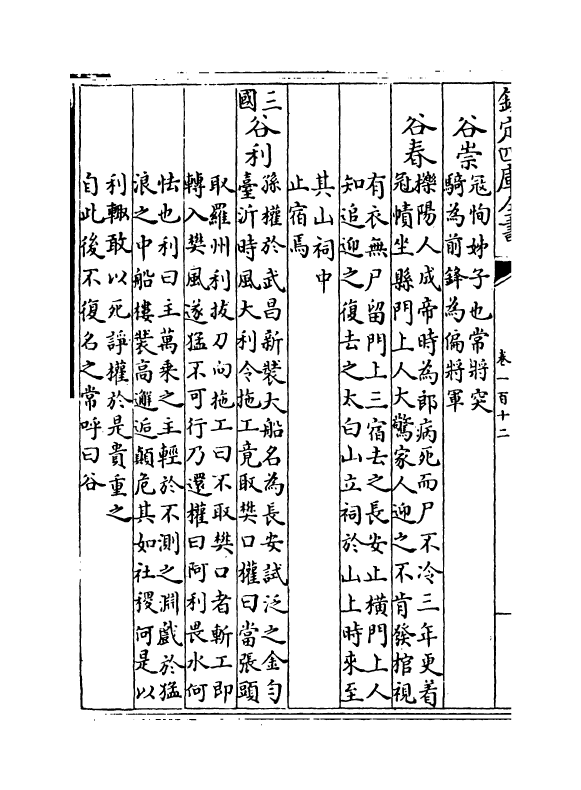 欽定四庫全書
卷一百十二
谷崇
寇恂姊子也常將突
騎為前鋒為偏將軍
谷春
櫟陽人成帝時為郎病死而尸不冷三年更着
冠幘坐縣門上人大驚家人迎之不肯發棺視
有衣無尸留門上三宿去之長安止橫門上人
知追迎之復去之太白山立祠於山上時來至
其山祠中
止宿焉
三國
谷利
孫權於武昌新裝大船名為長安試泛之釣
臺沂時風大利令拖工竟取樊口權曰當張頭
取羅州利拔刀向拖工曰不取樊口者斬工即
轉入樊風遂猛不可行乃還權曰阿利畏水何
怯也利曰主萬乘之主輕於不測之淵戲於猛
浪之中船樓裝高邂逅顛危其如社稷何是以
利輙敢以死諍權於是貴重之
自此後不復名之常呼曰谷